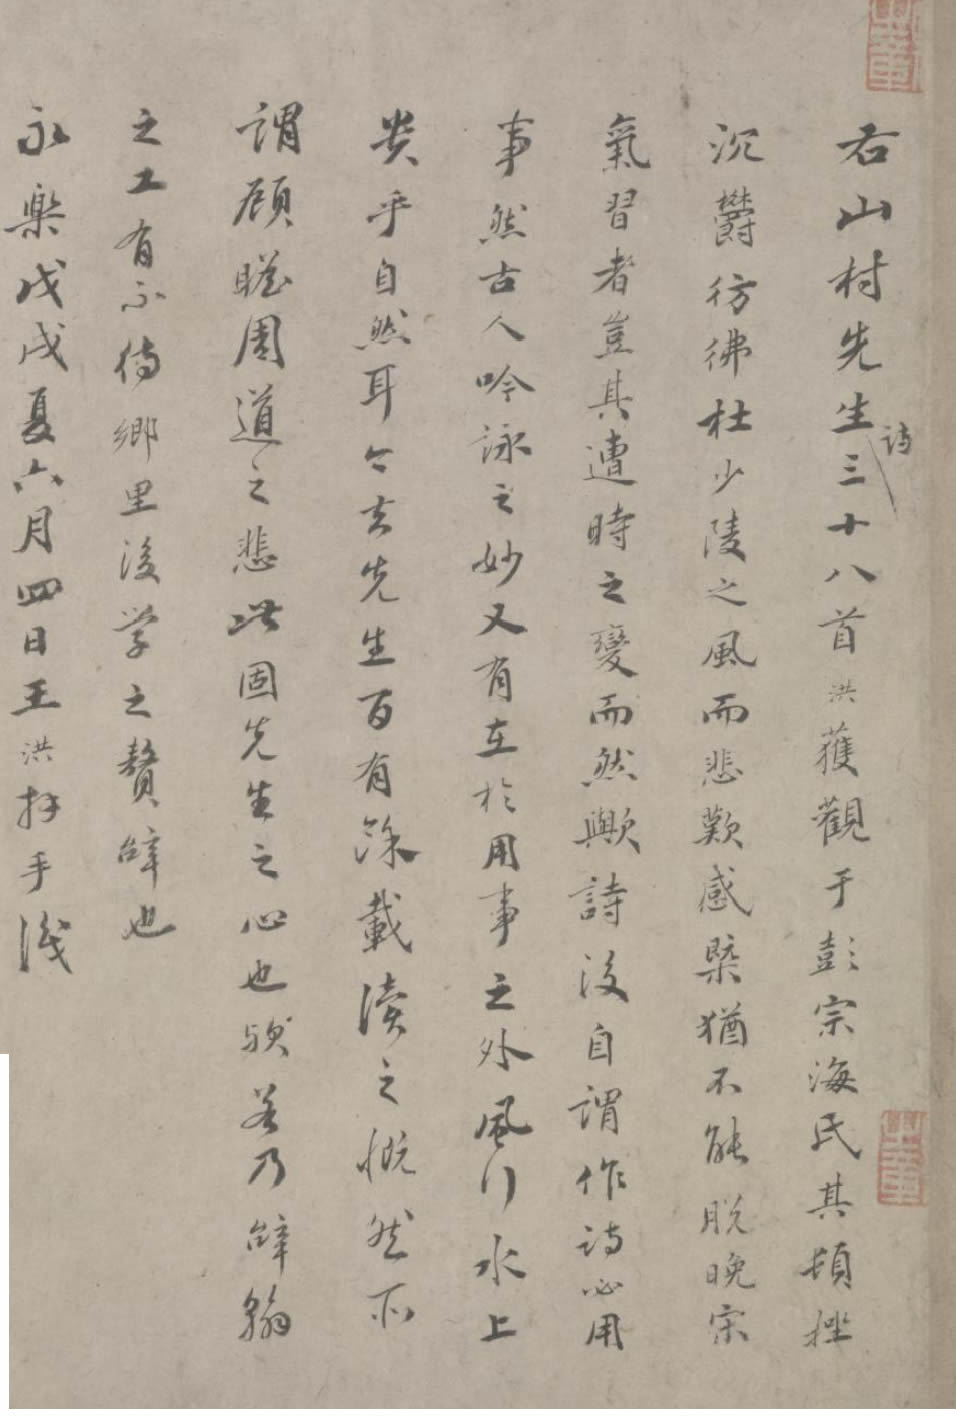 右山村先生詩三十八首洪獲觀于彭宗海氏其頓挫
沉鬱彷彿杜少陵之風而悲歎感槩猶不能脫晚宋
氣習者豈其遭時之變而然歟詩後自謂作詩必用
事然古人吟詠之妙又有在於用事之外風行水上
貴乎自然耳今去先生百有餘載讀之慨然所
謂顧瞻周道之悲此固先生之心也歟若乃辭翰
之工有不待鄉里後學之贅辭也
永樂戊戌夏六月四日王洪拜手識